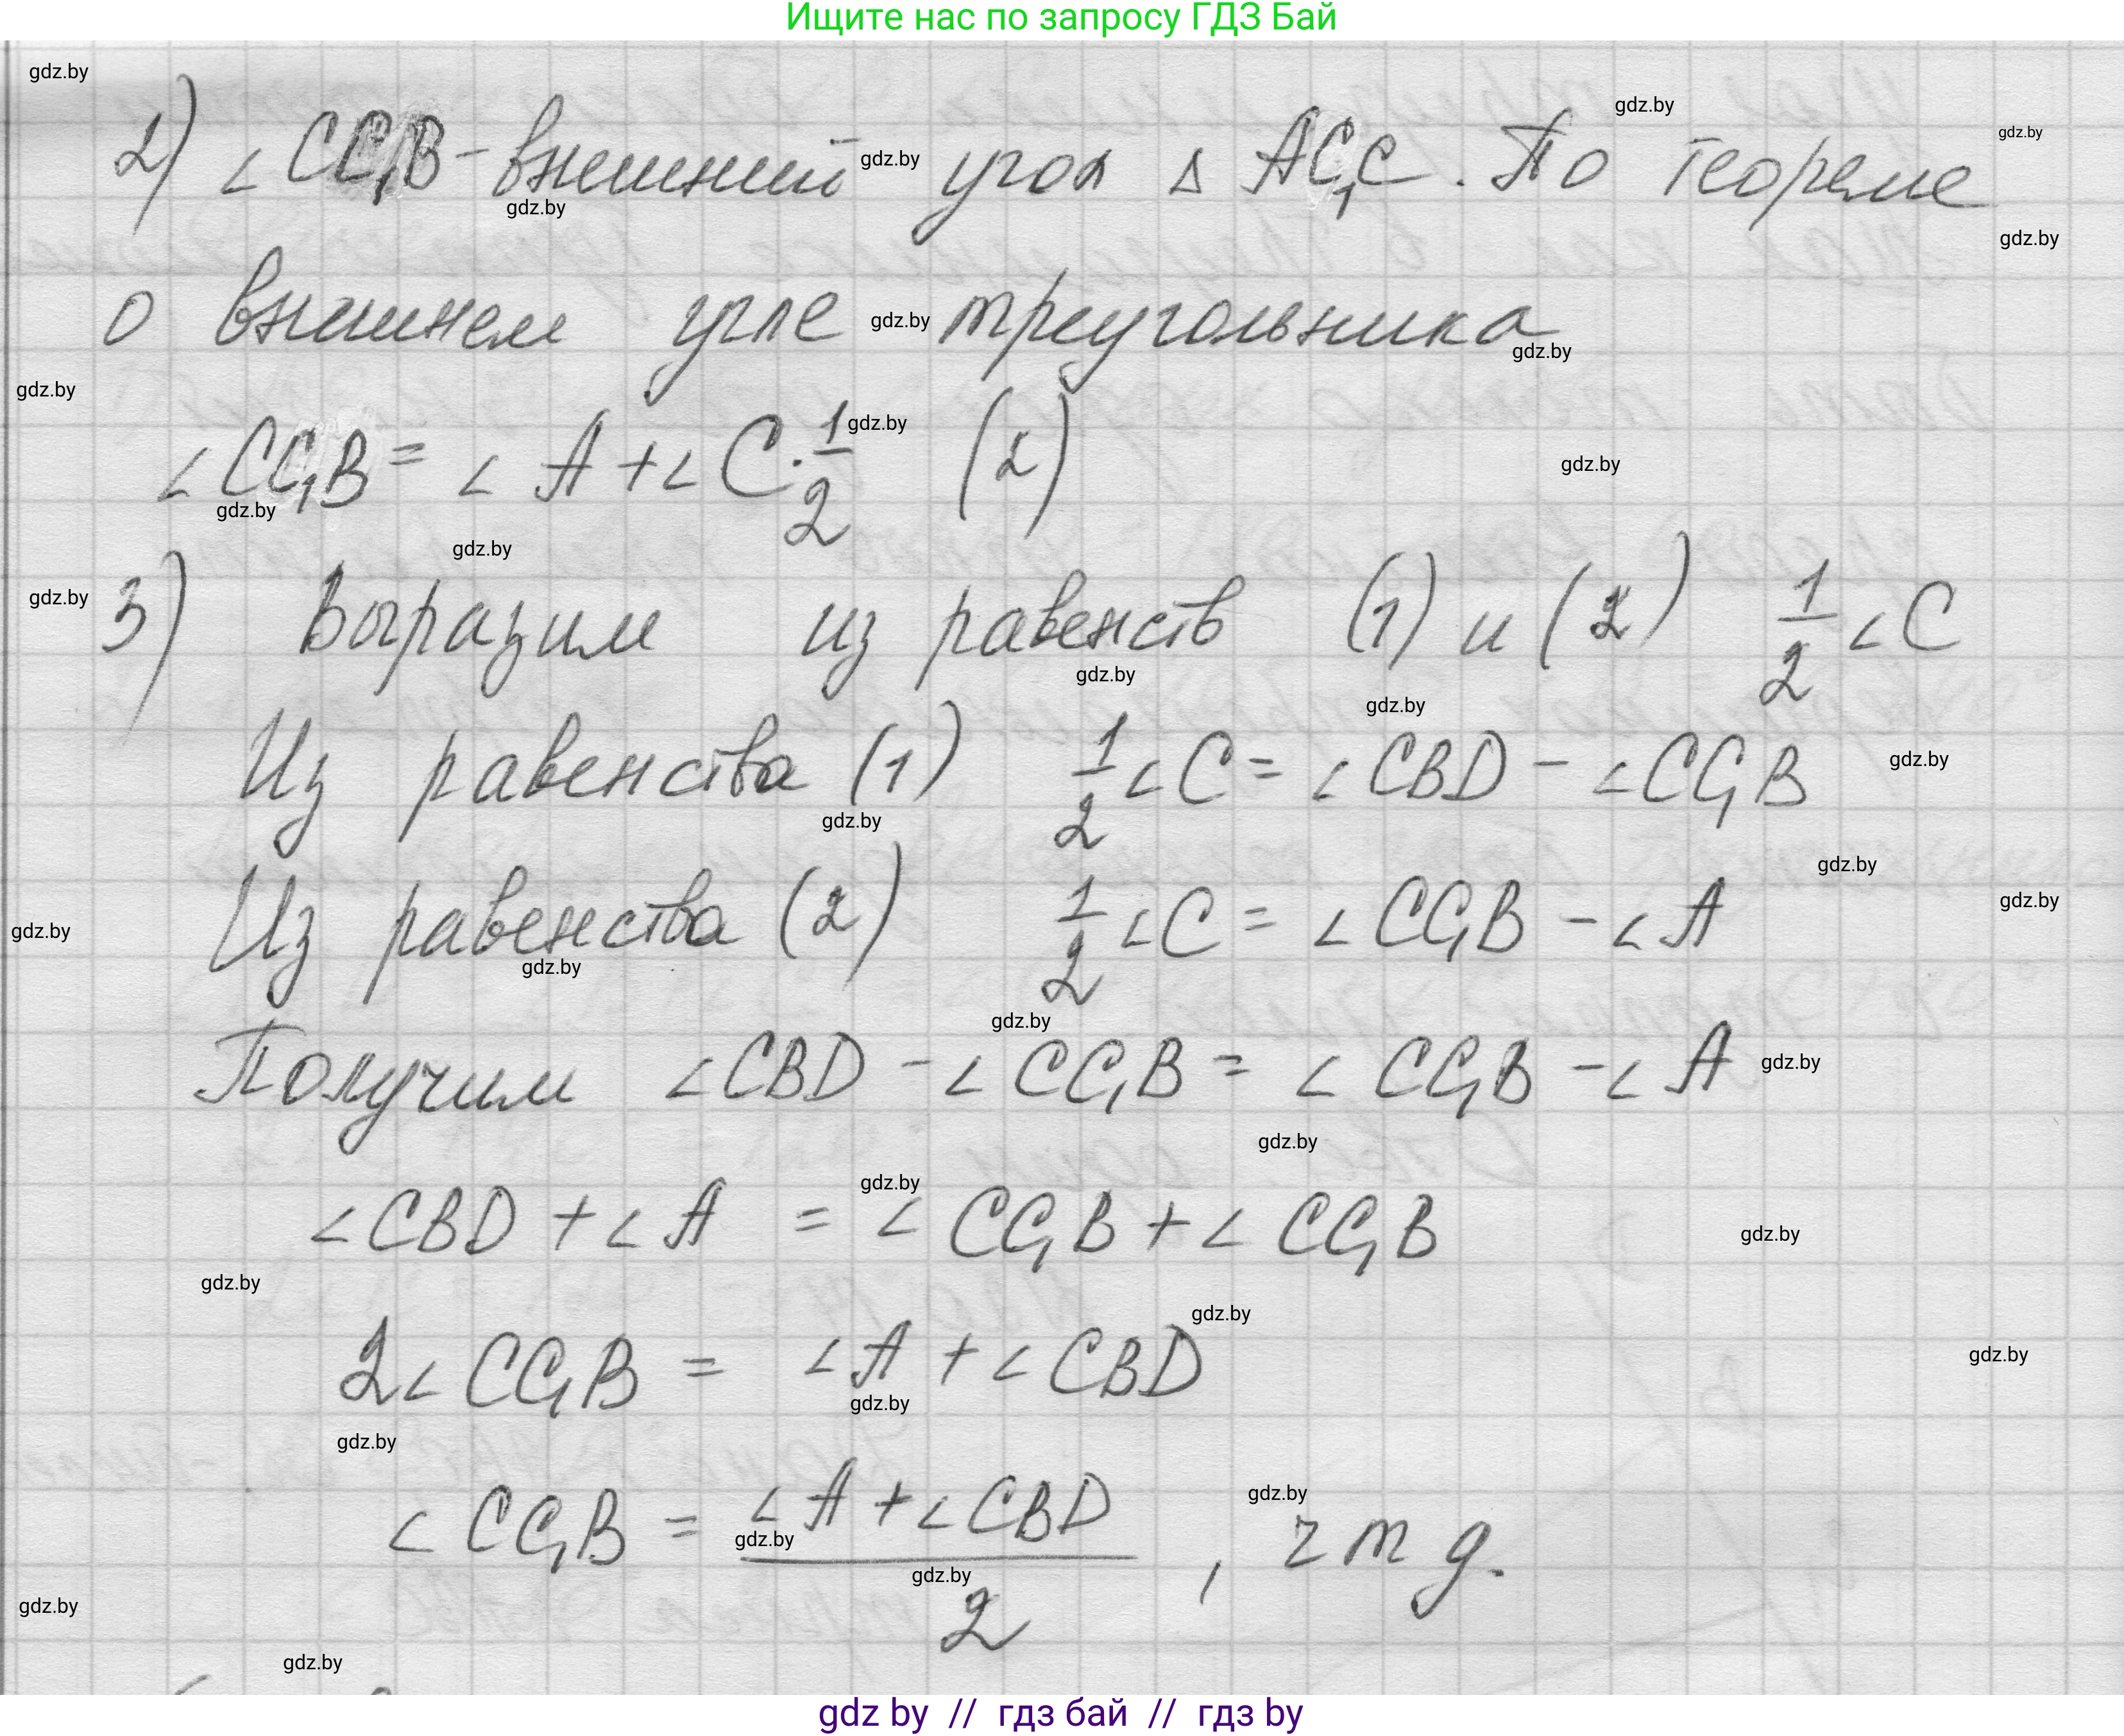 Ищите нас по запросу ГДЗ Бай
2) ∠CC₁B - внешний угол △ AC₁C. По теореме
о внешнем угле треугольника
∠CC₁B = ∠A + ∠C · 1/2 (2)
3) Выразим из равенств (1) и (2) 1/2 ∠C
Из равенства (1) 1/2 ∠C = ∠CBD - ∠CC₁B
Из равенства (2) 1/2 ∠C = ∠CC₁B - ∠A
Получим ∠CBD - ∠CC₁B = ∠CC₁B - ∠A
∠CBD + ∠A = ∠CC₁B + ∠CC₁B
2∠CC₁B = ∠A + ∠CBD
∠CC₁B = (∠A + ∠CBD)/2, ч т д.
gdz by // гдз бай // гдз by